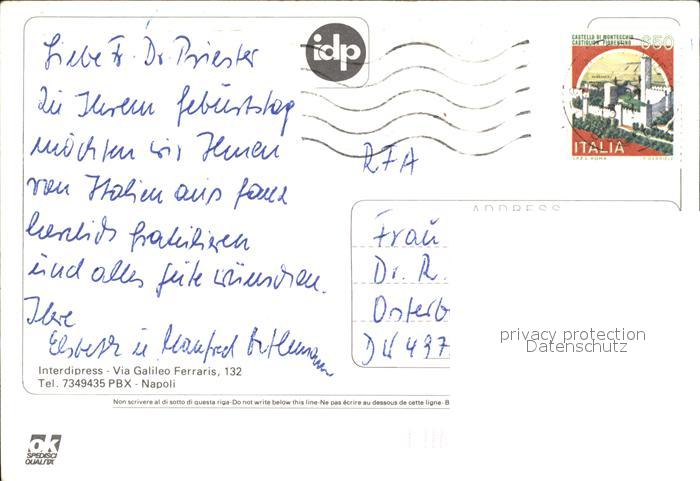 Liebe Fr. Dr. Priester
Zu Ihrem Geburtstag
möchten wir Ihnen
von Italien aus ganz
herzlich gratulieren
und alles gute wünschen.
Ihre
Elsbeth u. Manfred
idp
CASTELLO DI MONTECCHIO
CASTIGLION FIORENTINO
650
ITALIA
I.P.Z.S. ROMA
RFA
ADDRESS
Frau
Dr. R.
Osterb
497
privacy protection
Datenschutz
Interdipress - Via Galileo Ferraris, 132
Tel. 7349435 PBX - Napoli
Non scrivere al di sotto di questa riga-Do not write below this line-Ne pas écrire au dessous de cette ligne- B
ok
SPEDISCI
QUALITA'